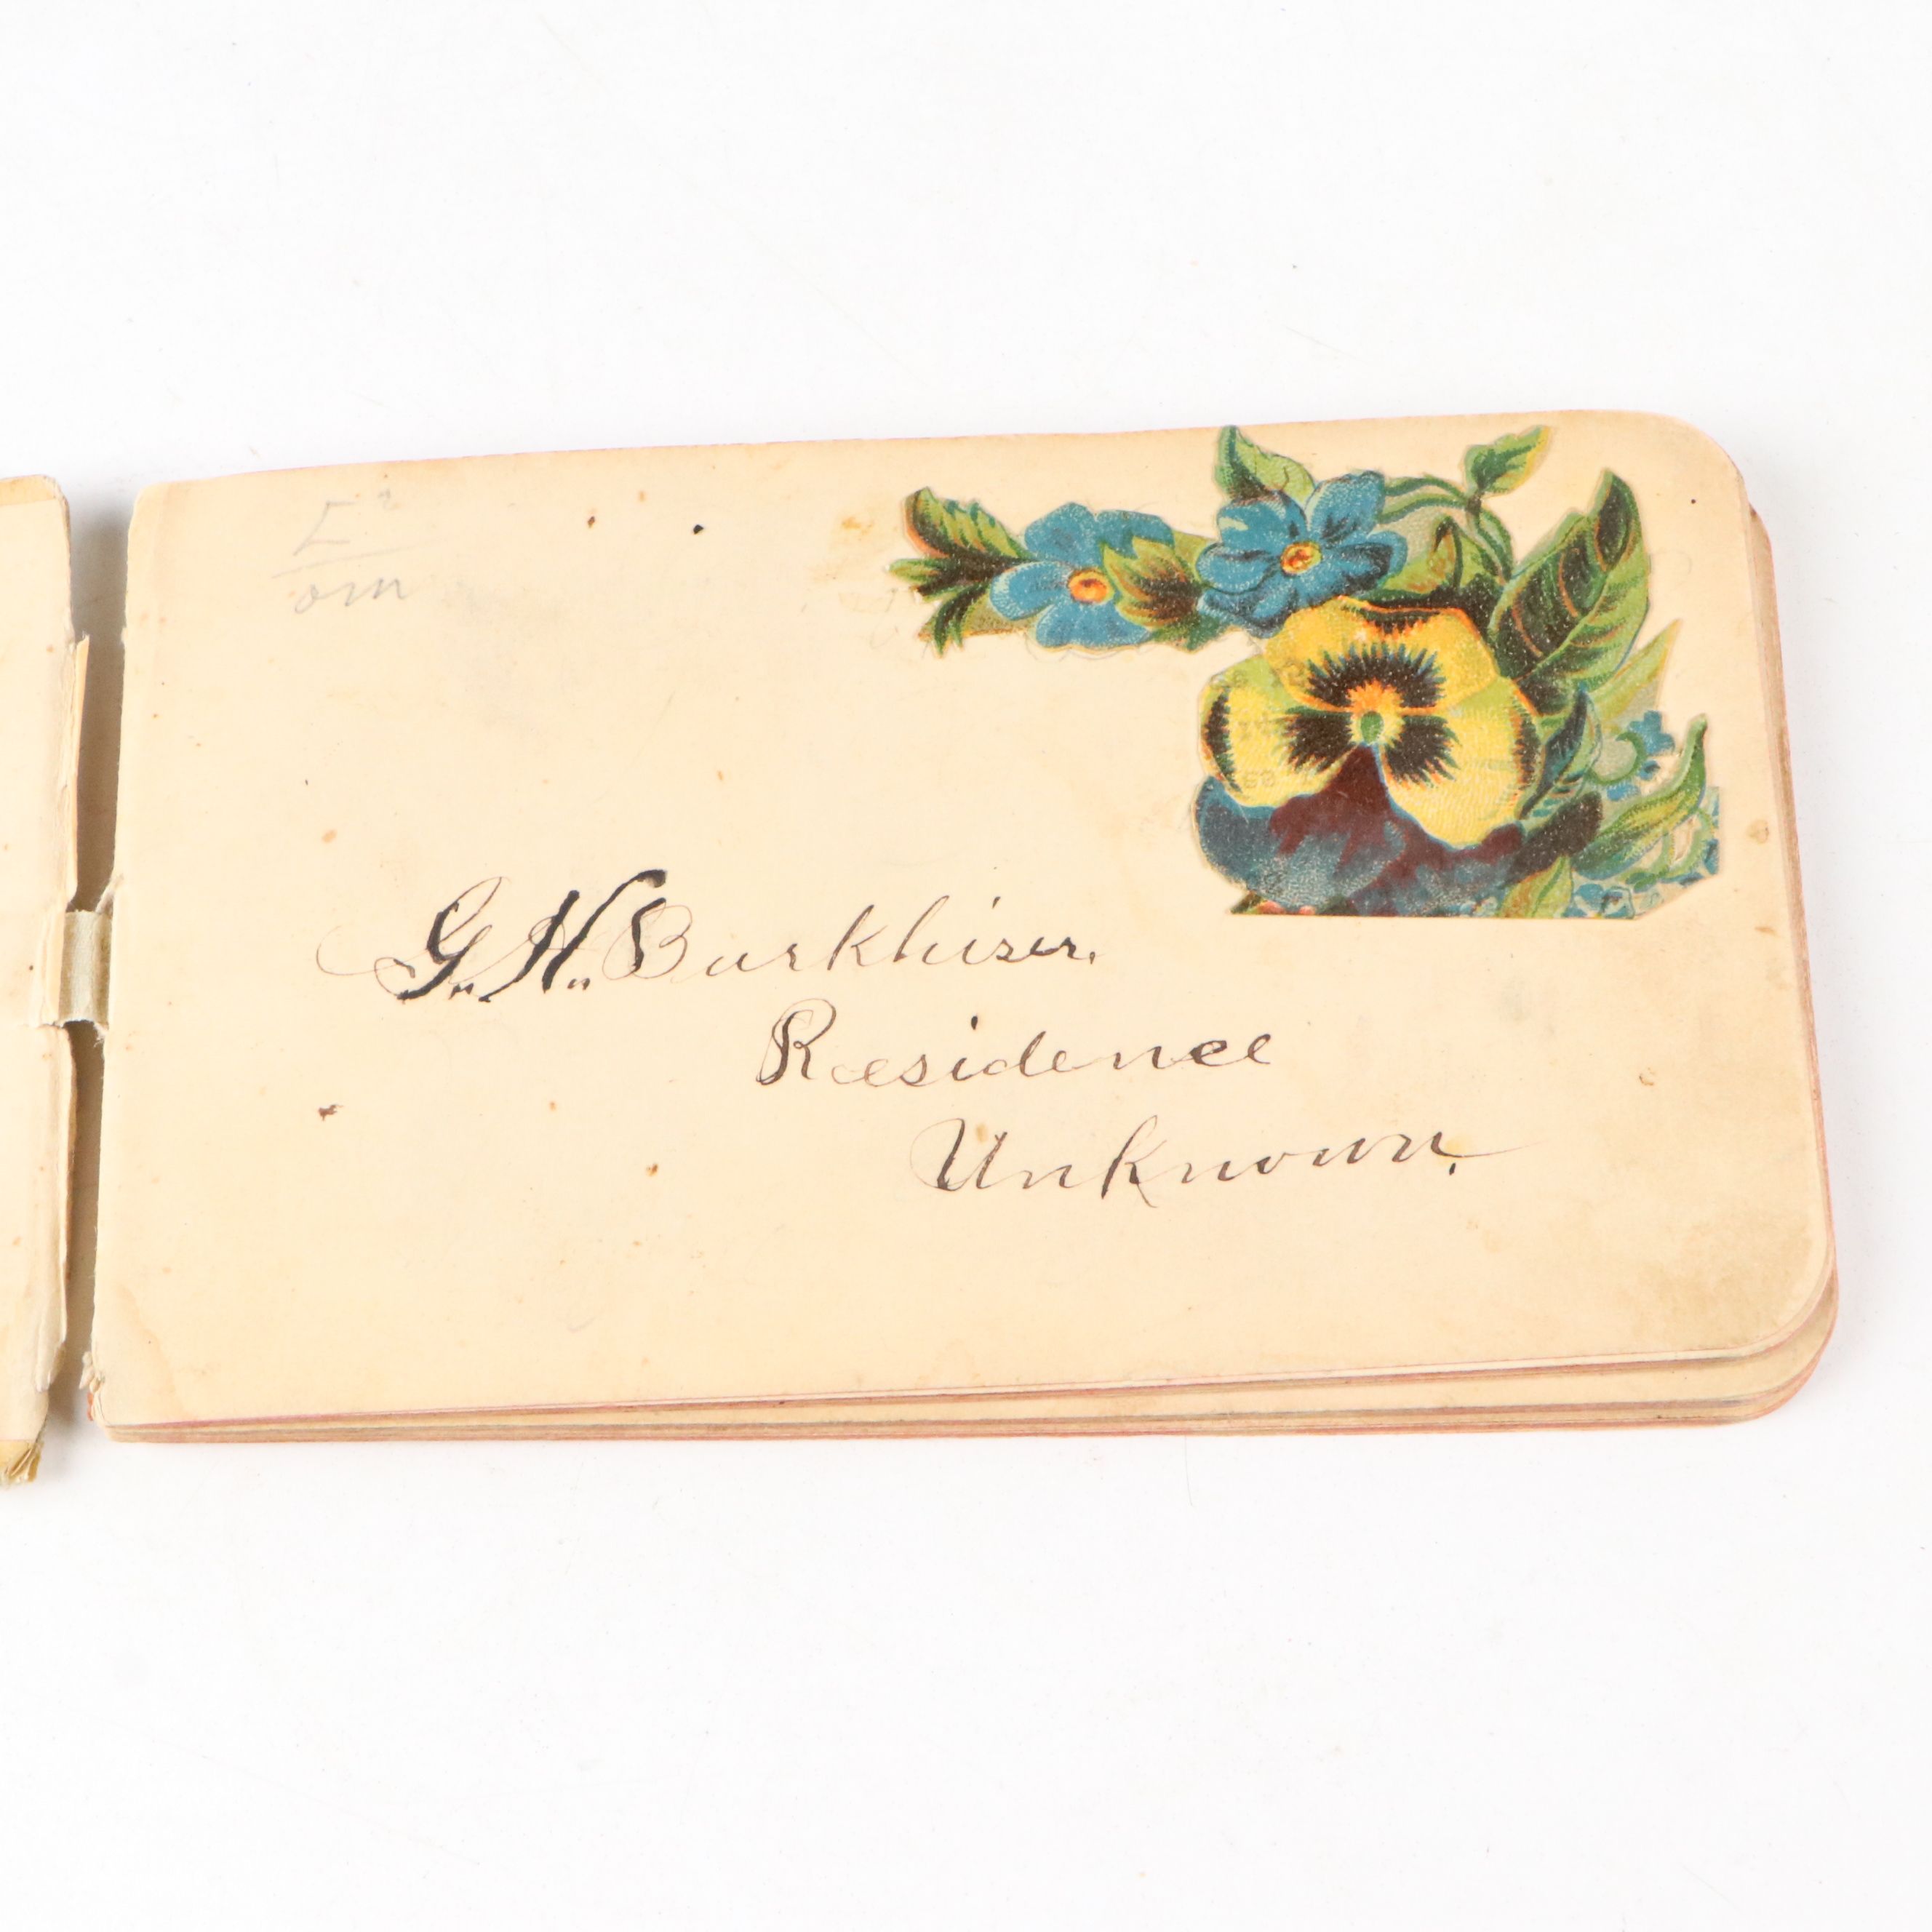 G. H. Burkhiser.
Residence
Unknown.